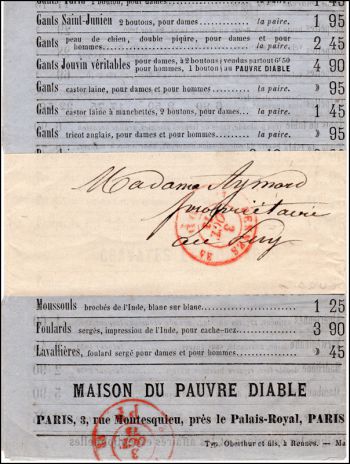 Gants Saint-Junien 2 boutons, pour dames la paire. 1 95
Gants peau de chien, double piqûre, pour dames et pour hommes la paire. 2 45
Gants Jouvin véritables pour dames, à 2 boutons; vendus partout 6f 50 pour hommes, 1 bouton; au PAUVRE DIABLE 4 90
Gants castor laine, pour dames et pour hommes la paire. » 95
Gants castor laine à manchettes, 2 boutons, pour dames... la paire. 1 45
Gants tricot anglais, pour dames et pour hommes la paire. » 95
Madame Aymard
propriétaire
au Puy
Moussouls brochés de l'Inde, blanc sur blanc 1 25
Foulards sergés, impression de l'Inde, pour cache-nez 3 90
Lavallières, foulard sergé pour dames et pour hommes » 45
MAISON DU PAUVRE DIABLE
PARIS, 3, rue Montesquieu, près le Palais-Royal, PARIS
Typ. Oberthur et fils, à Rennes. — Ma